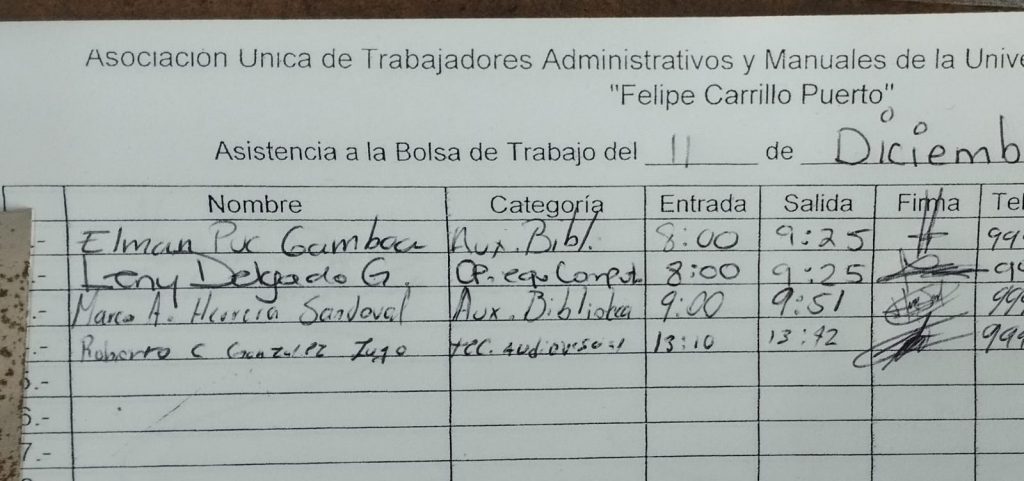 Asociación Unica de Trabajadores Administrativos y Manuales de la Unive
"Felipe Carrillo Puerto"
Asistencia a la Bolsa de Trabajo del 11 de Diciemb
Nombre Categoría Entrada Salida Firma Tel
.- Elman Puc Gamboa Aux. Bibl. 8:00 9:25 99
Leny Delgado G. OP. equ Comput 8:00 9:25 99
.- Marco A. Sandoval Aux. Biblioteca 9:00 9:51 999
.- Roberto C González Lugo tec. audiovisual 13:10 13:42 999
5.-
6.-
7.-